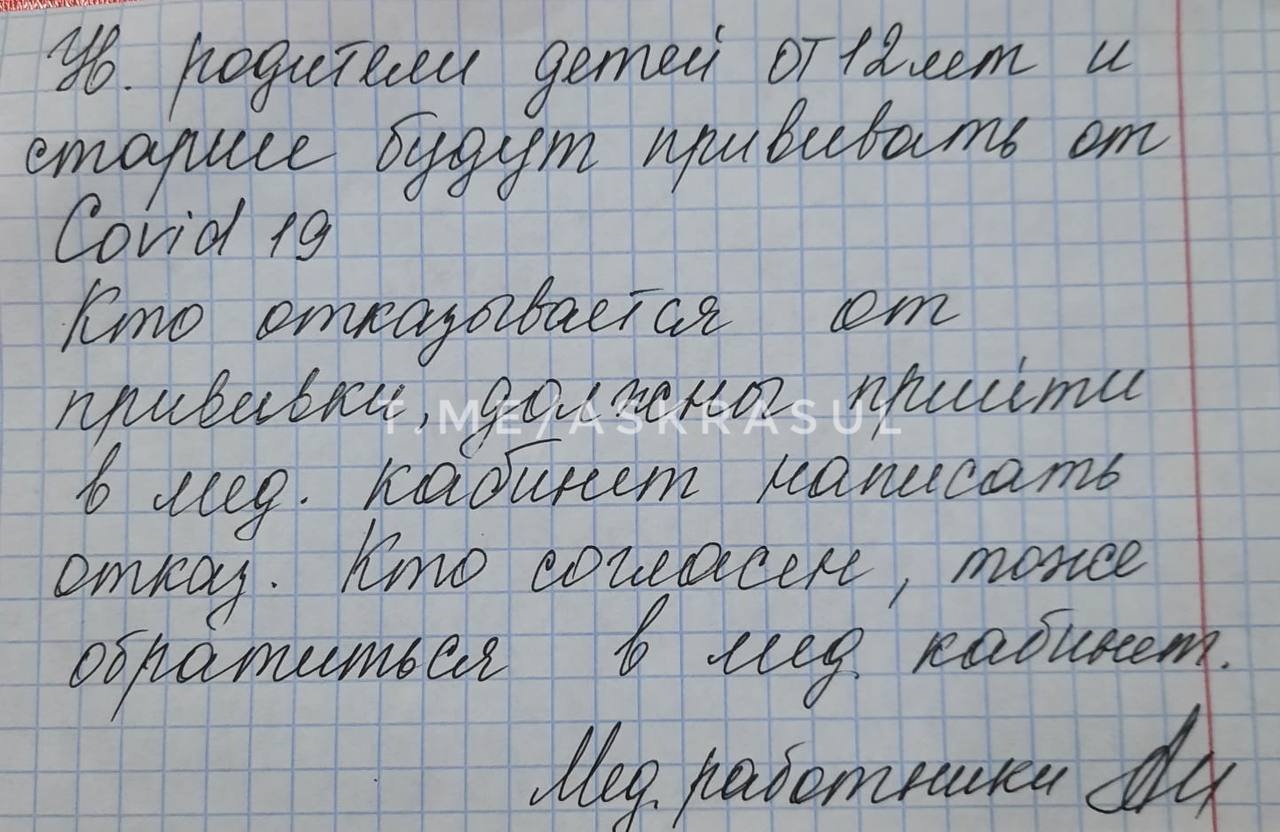 Ув. родители детей от 12 лет и
старше будут прививать от
Covid 19
Кто отказывается от
прививки, должны прийти
T.ME/ASKRASUL
в мед. кабинет написать
отказ. Кто согласен, тоже
обратиться в мед кабинет.
Мед. работники